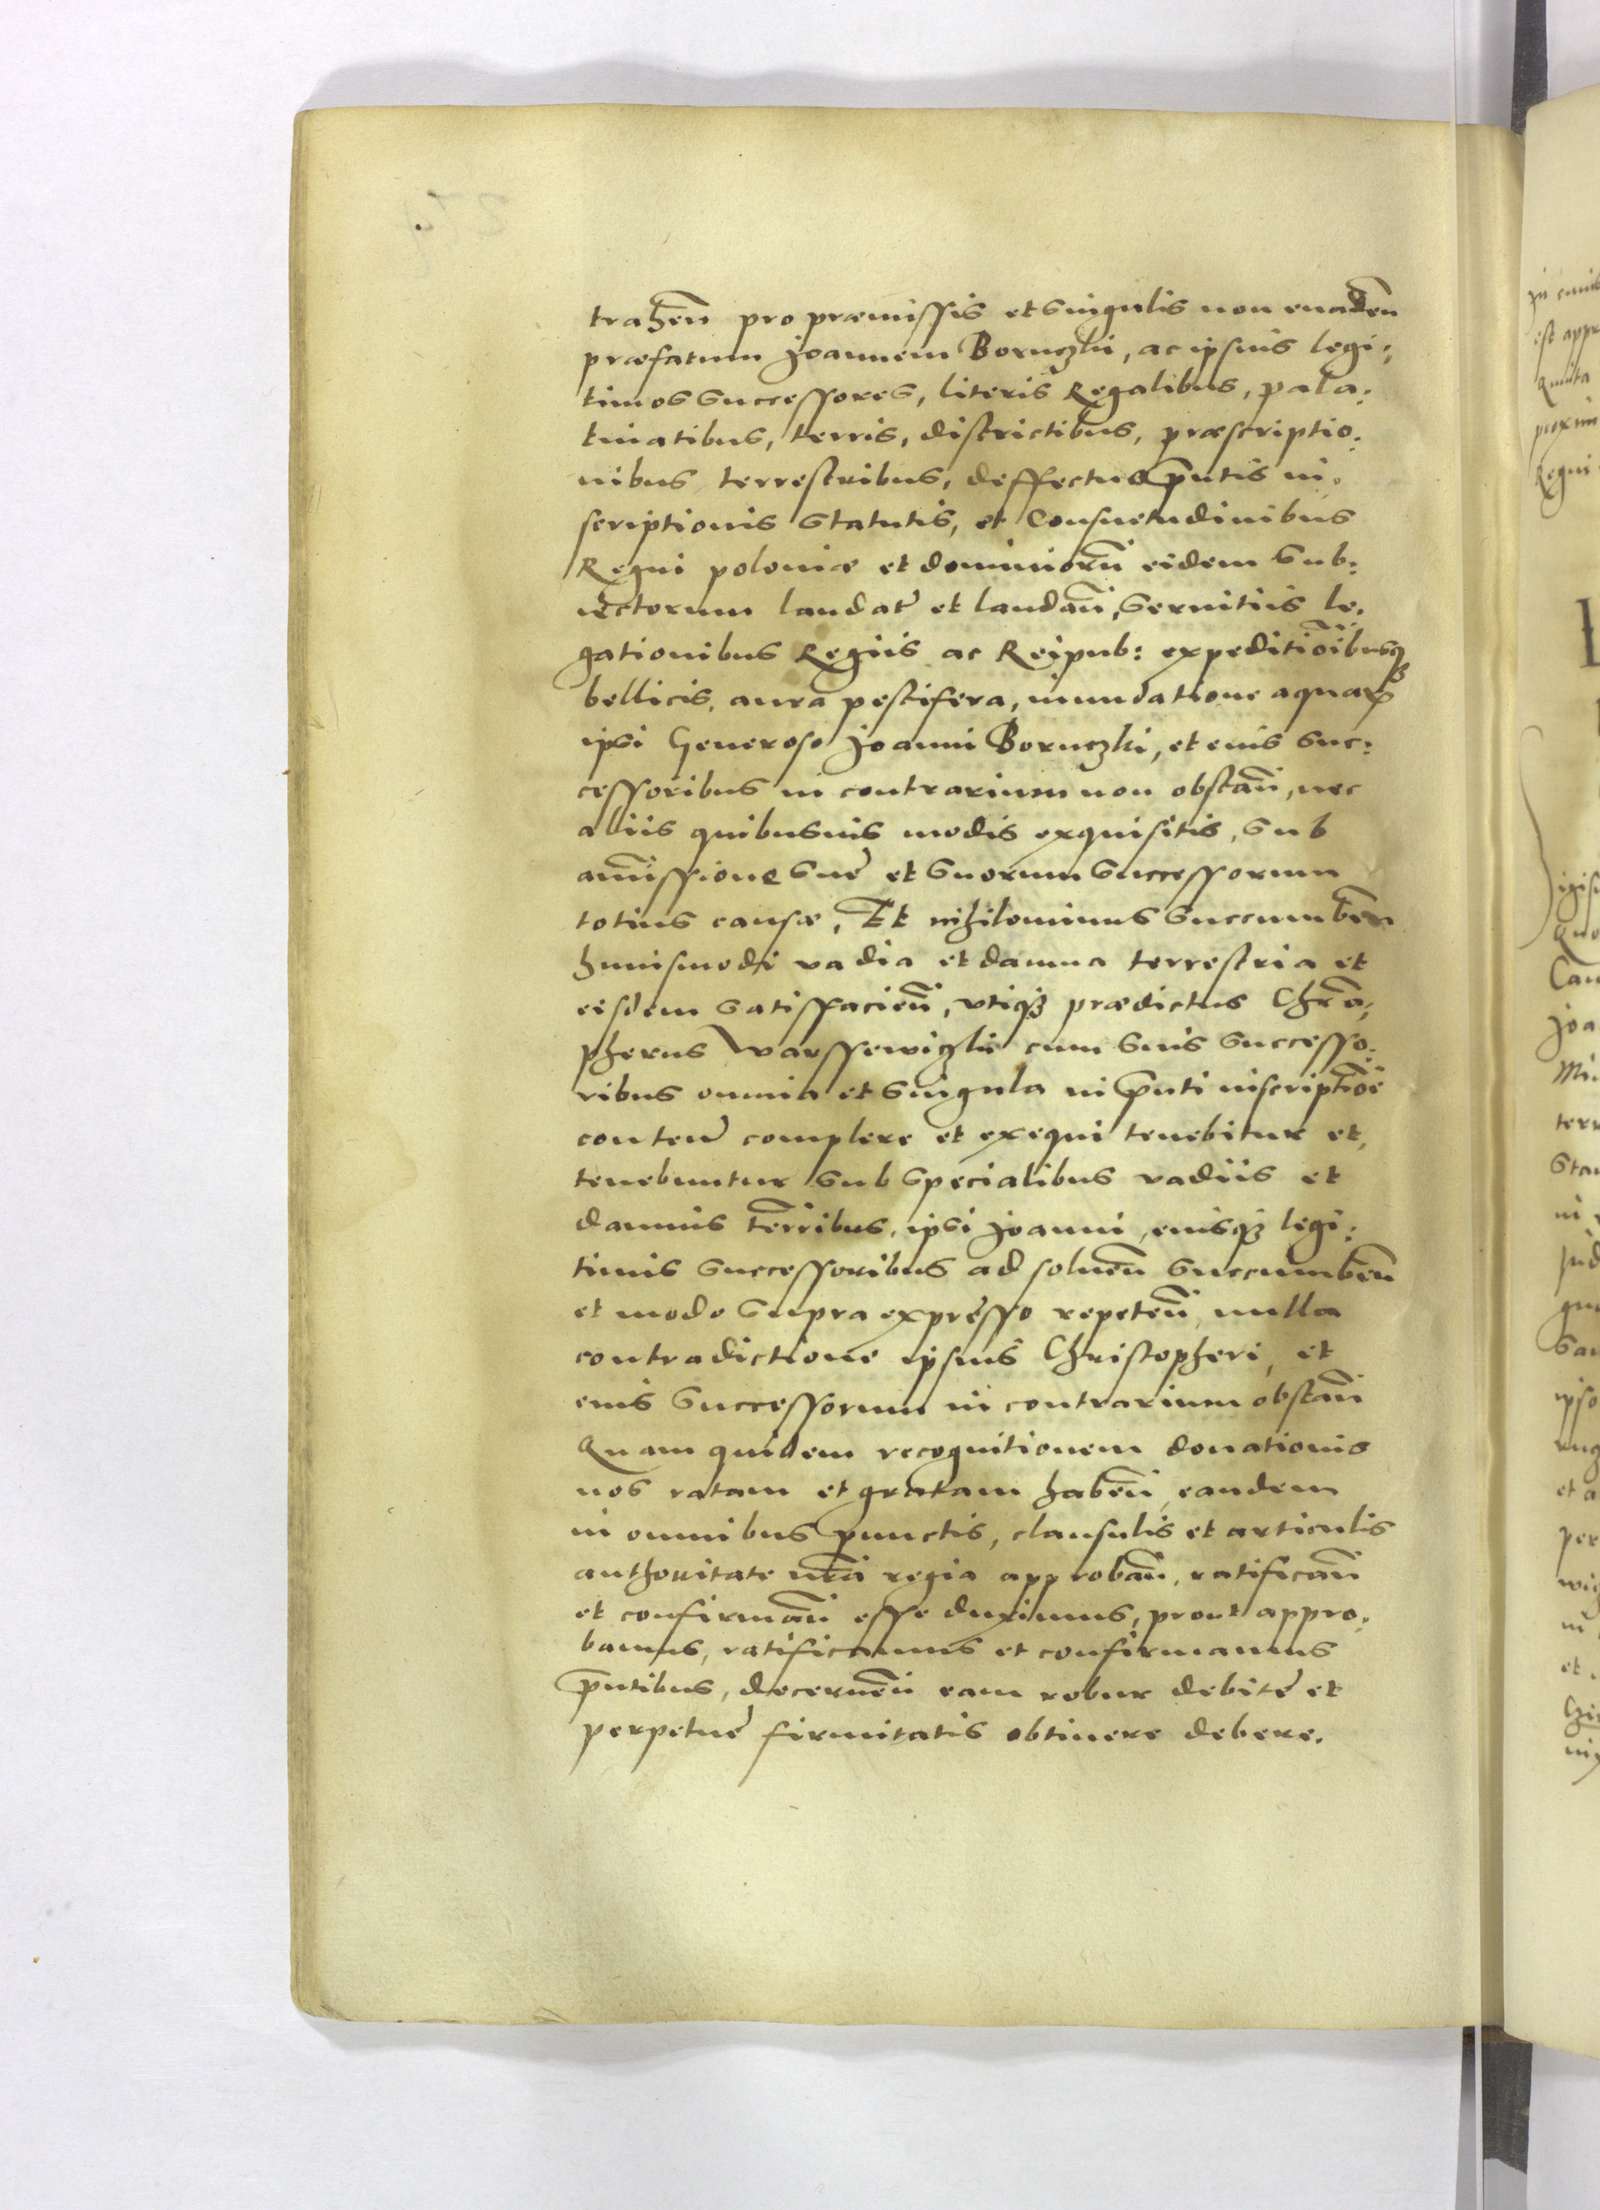 trahen̄ pro præmissis et singulis non euaden̄
præfatum Joannem Boruczki, ac ipsius legi:
timos successores, literis Regalibus, pala:
tinatibus, terris, districtibus, præscriptio:
nibus terrestribus, deffectu p̄ntis in:
scriptionis statutis, et Consuetudinibus
Regni poloniæ et dominiorū eidem sub:
iectorum laudat̄ et laudan̄, seruitiis le:
gationibus Regiis ac Reipub: expeditiōibusq3
bellicis, aura pestifera, inundatione aquarꝝ
ipsi Generoso Joanni Boruczki, et eius suc:
cessoribus in contrarium non obstan̄, nec
aliis quibusuis modis exquisitis, sub
am̄issione suę et suorum successorum
totius causæ, Et nihilominus succumben̄
huiusmodi vadia et damna terrestria et
eisdem satisfacien̄, vtiq3 prædictus Chr̄o:
pherus Warssewiczki cum suis successo:
ribus omnia et singula in p̄nti inscriptiōe
conten̄ complere et exequi tenebitur et,
tenebuntur sub specialibus vadiis et
damnis terr̄ibus, ipsi Joanni, eiusq3 legi:
timis successoribus ad soluen̄ succumben̄
et modo supra expresso repeten̄, nulla
contradictione ipsius Christopheri, et
eius successorum in contrarium obstan̄
Quam quidem recognitionem donationis
nos ratam et gratam haben̄, eandem
in omnibus punctis, clausulis et articulis
authoritate nr̄a regia approban̄, ratifican̄
et confirman̄ esse duximus, prout appro:
bamus, ratificamus et confirmamus
p̄ntibus, decernen̄ eam robur debitę et
perpetuę firmitatis obtinere debere.